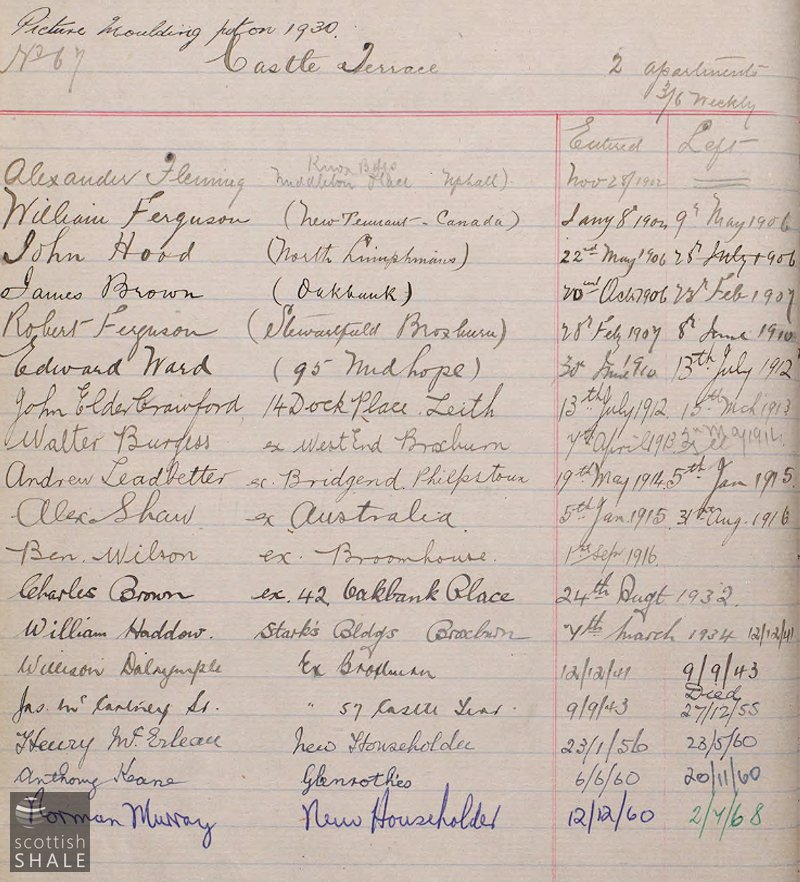 Picture Moulding put on 1930.
No 67 Castle Terrace 2 apartments
3/6 Weekly
Entered Left
Knox Bdgs
Alexander Fleming Middleton Place Uphall) Nov 28/1902
William Ferguson (New Tennant - Canada) Jany 8th 1904 9th May 1906
John Hood (North Limphmans) 22nd May 1906 28th July 1906
James Brown (Oakbank) Oct 1906 Feb 1907
Robert Ferguson (Stewartfield Broxburn) 28th Feb 1907 8th June 1910
Edward Ward (95 Midhope) 30th June 1910 13th July 1912
John Elder Crawford 14 Dock Place Leith 13th July 1912 15th Mch 1913
Walter Burgess ex West End Broxburn 7th April 1913 May 1914
Andrew Leadbetter ex Bridgend Philpstoun 19th May 1914 5th Jan 1915
Alex Shaw ex Australia 5th Jan 1915 31st Aug. 1916
Ben. Wilson ex. Broomhouse. 1st Sepr 1916.
Charles Brown ex. 42 Oakbank Place 24th Augt 1932.
William Haddow. Stark's Bldgs Broxburn 7th March 1934 12/12/41
William Dalrymple Ex Broxburn 12/12/41 9/9/43
Died
Jas. Mc Cartney Sr. " 57 Castle Terr. 9/9/43 27/12/55
Henry McErlean New Householder 23/1/56 23/5/60
Anthony Keane Glenrothes 6/6/60 20/11/60
Norman Murray New Householder 12/12/60 2/7/68
scottish
SHALE